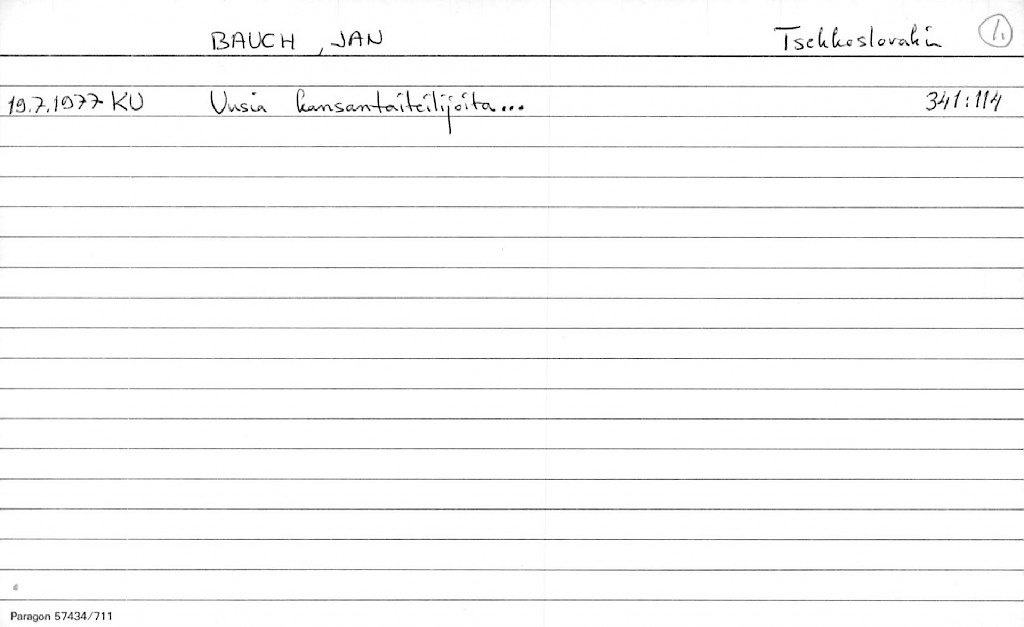 BAUCH, JAN Tsekkoslovakia 1.
19.7.1977 KU Uusia kansantaiteilijoita... 341:114
Paragon 57434/711